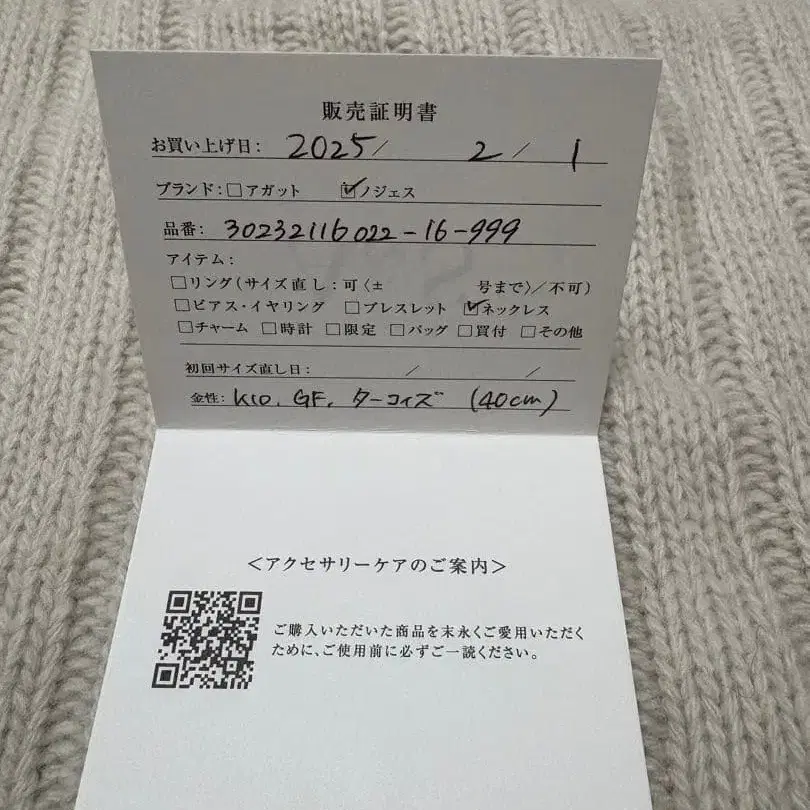 販売証明書
お買い上げ日: 2025/ 2/ 1
ブランド:□アガット ☑ノジェス
品番: 30232116022-16-999
アイテム:
□リング(サイズ直し:可〈± 号まで〉/不可)
□ピアス・イヤリング □ブレスレット ☑ネックレス
□チャーム □時計 □限定 □バッグ □買付 □その他
初回サイズ直し日: / /
金性: K10, GF, ターコイズ (40cm)
<アクセサリーケアのご案内>
ご購入いただいた商品を末永くご愛用いただく
ために、ご使用前に必ずご一読ください。